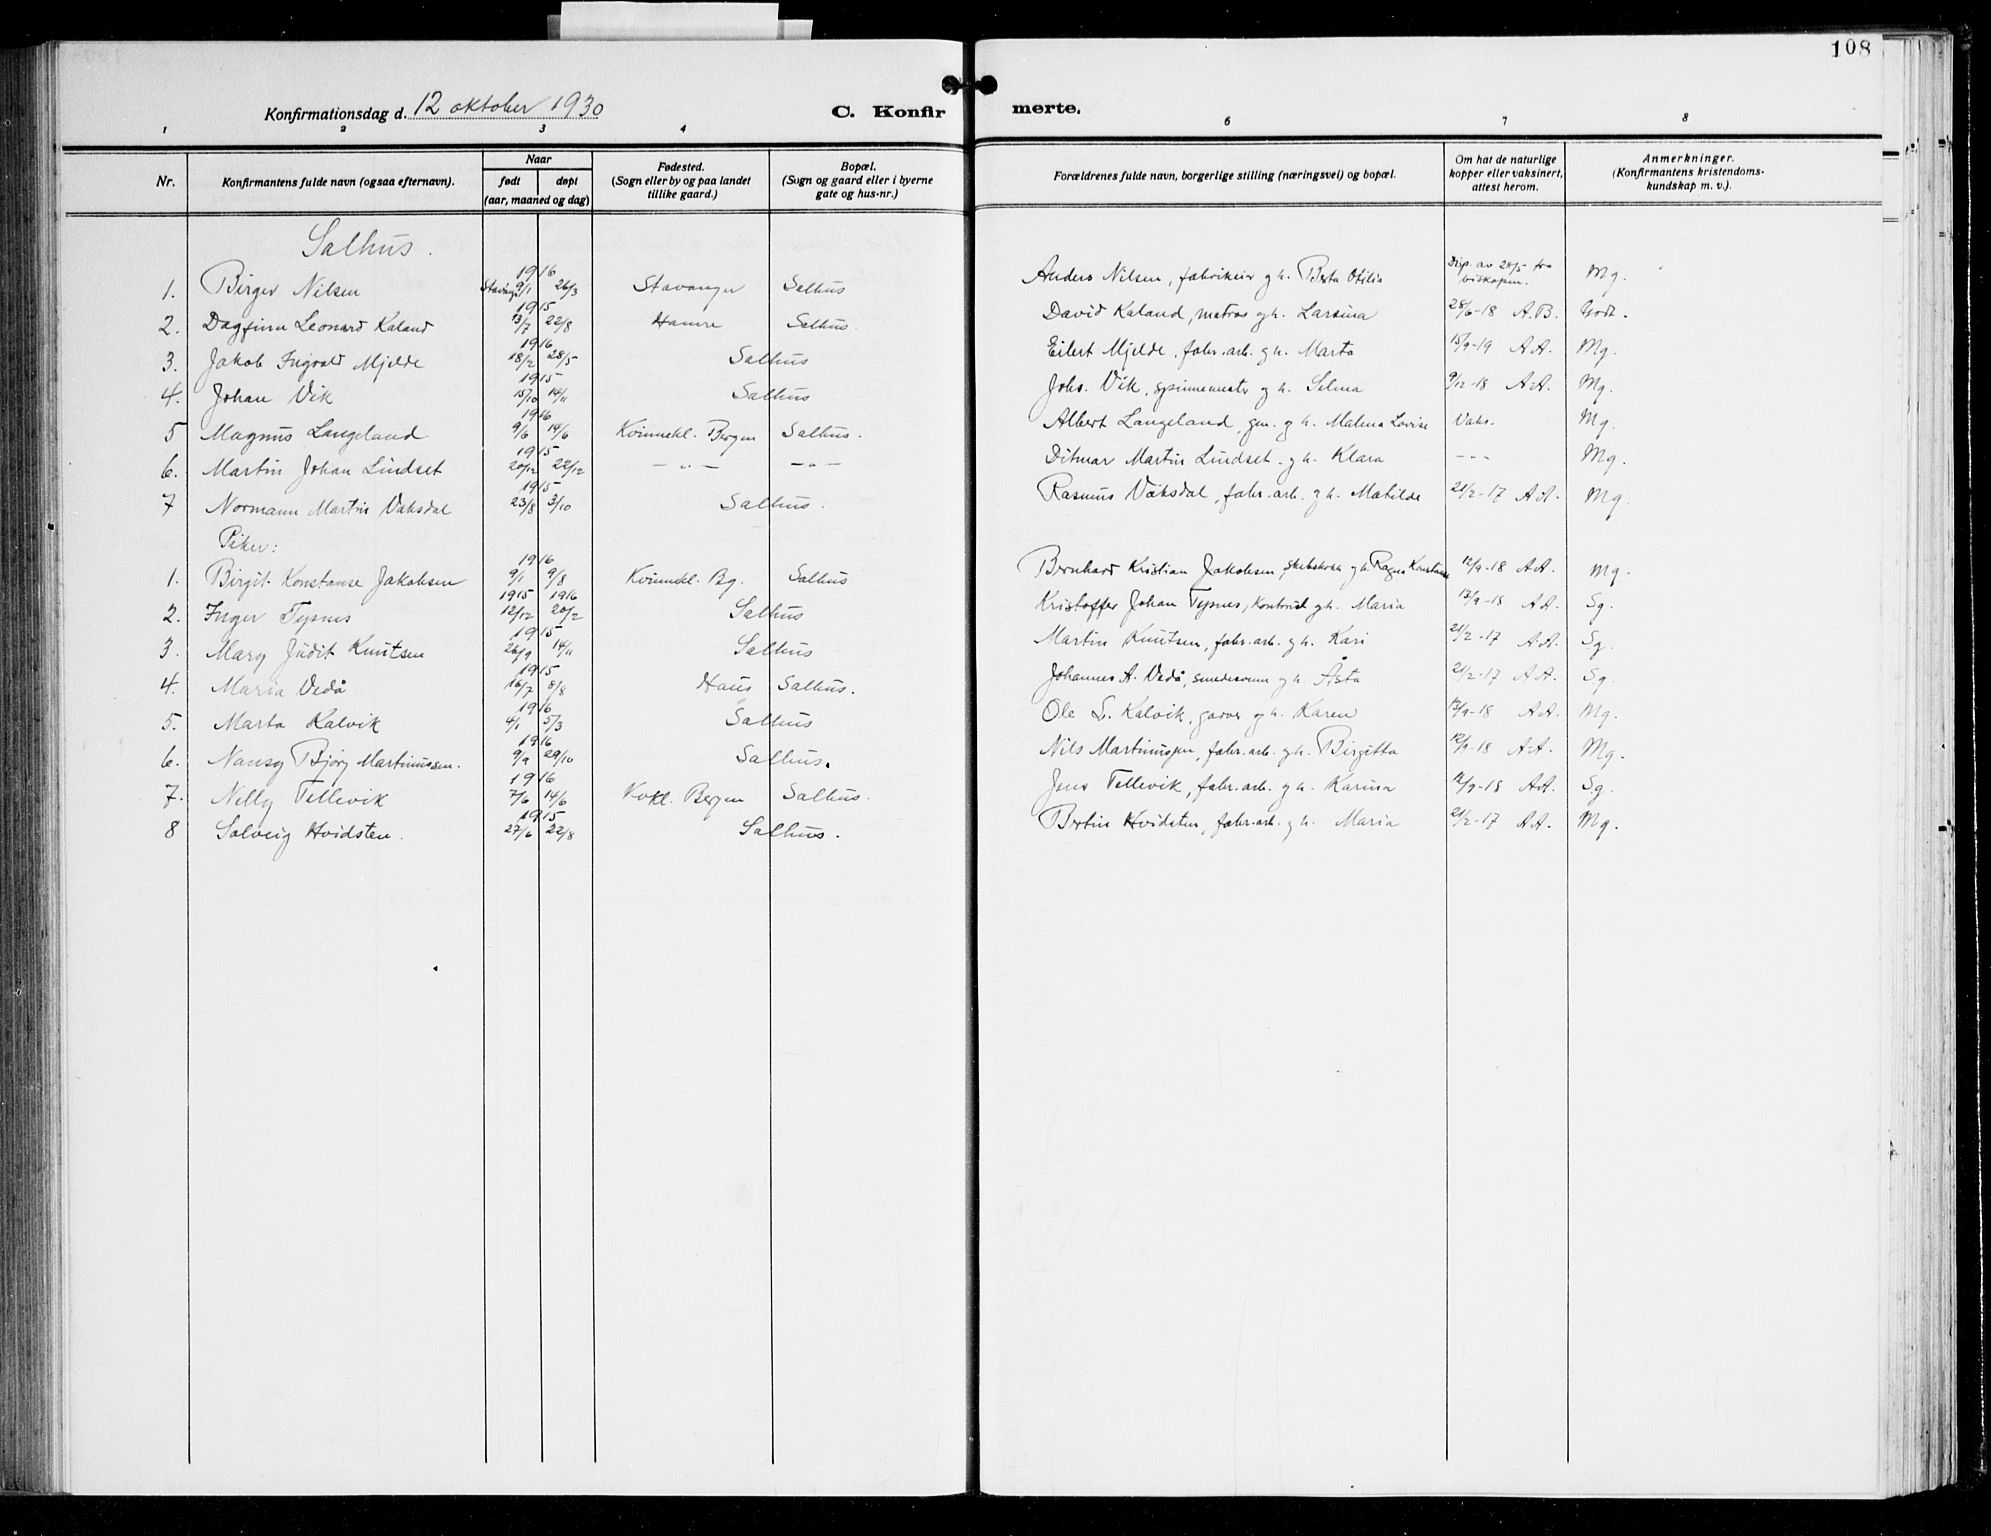 108
Konfirmationsdag d. 12 oktober 1930
C. Konfirmerte.
1 2 3 4 6 7 8
Nr.
Konfirmantens fulde navn (ogsaa efternavn).
Naar
født døpt
(aar, maaned og dag)
Fødested.
(Sogn eller by og paa landet
tillike gaard.)
Bopæl.
(Sogn og gaard eller i byerne
gate og hus-nr.)
Forældrenes fulde navn, borgerlige stilling (næringsvei) og bopæl.
Om hat de naturlige
kopper eller vaksinert,
attest herom.
Anmerkninger.
(Konfirmantens kristendoms-
kundskap m. v.).
Salhus.
1916
1. Birger Nilsen 9/1 26/3 Stavanger Salhus Anders Nilsen, fabrikeier g h. Berta Otilia Disp. av 28/5 fra biskopen. Mg.
1915
2. Dagfinn Leonard Kaland 13/7 22/8 Hamre Salhus. David Kaland, matros g h. Larsina 28/6-18 A.B. Godt.
1916
3. Jakob Ingvald Mjelde 18/2 28/5 Salhus Eilert Mjelde, fabr. arb. g h. Marta 15/9-19 A A. Mg.
1915
4. Johan Vik 15/10 14/11 Salhus Johs. Vik, spinnemester g h. Selma 9/12-18 A A. Mg.
1916
5 Magnus Langeland 9/6 14/6 Kvinnekl. Bergen Salhus. Albert Langeland, g h. Malena Lovise Vaks. Mg.
1915
6. Martin Johan Lindset 20/12 22/12 - " - - " - Ditmar Martin Lindset g h. Klara - " - Mg.
1915
7 Normann Martin Vaksdal 23/8 3/10 Salhus. Rasmus Vaksdal, fabr. arb. g h. Matilde 21/2-17 A A. Mg.
Piker:
1916
1. Birgit Konstanse Jakobsen 9/1 9/8 Kvinnekl. Bg. Salhus Bernhard Kristian Jakobsen, g h. Ragna Konstanse 12/9-18 A A. Mg.
1915 1916
2. Inger Tysnes 12/12 20/2 Salhus Kristoffer Johan Tysnes, g h. Maria 12/9-18 A A. Sg.
1915
3. Mary Judit Knutsen 26/9 14/11 Salhus Martin Knutsen, fabr. arb. g h. Kari 21/2-17 A A. Sg.
1915
4. Maria Vedå 16/7 8/8 Haus Salhus. Johannes A. Vedå, smedesvenn g h. Åsta 21/2-17 A A. Sg.
1916
5. Marta Kalvik 4/1 5/3 Salhus Ole L. Kalvik, garver g h. Karen 12/9-18 A A. Mg.
1916
6. Nansy Bjørg Martinussen. 9/9 29/10 Salhus. Nils Martinussen, fabr. arb. g h. Birgitta 12/9-18 A A. Mg.
1916
7. Nelly Tellevik 7/6 14/6 Kvkl. Bergen Salhus. Jens Tellevik, fabr. arb. g h. Karina 12/9-18 A A. Sg.
1915
8 Solveig Hvidsten. 27/6 22/8 Salhus. Bertin Hvidsten, fabr. arb. g h. Maria 21/2-17 A A. Mg.